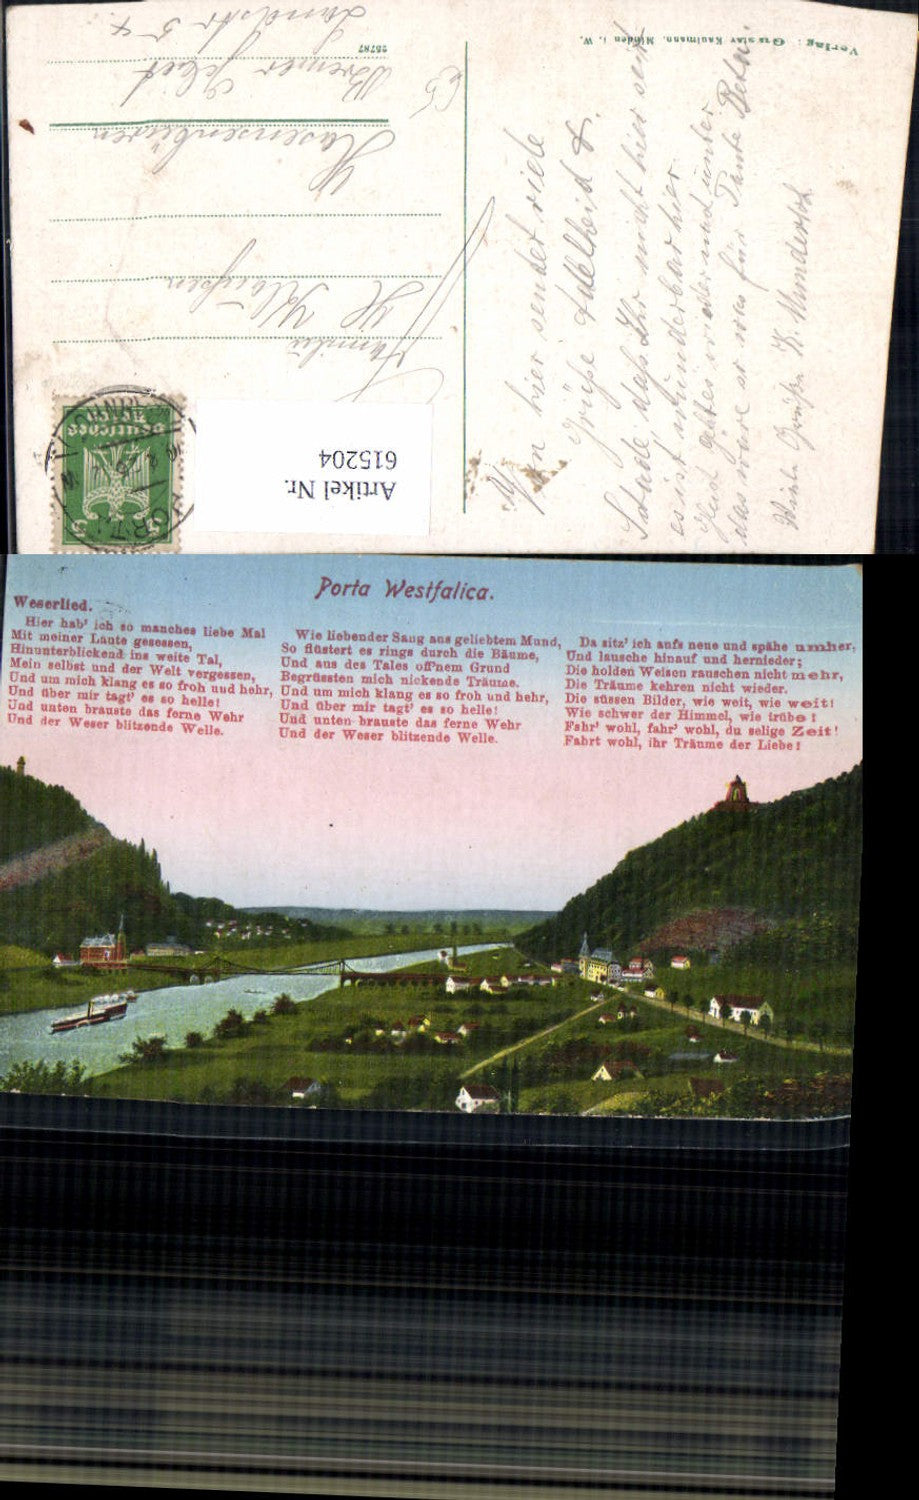 Verlag: Gustav Kaufmann, Minden i. W.
25787
Von hier sendet viele
Grüße Adelheid &.
Schade, daß Ihr nicht hier seid
es ist wunderbar hier.
das wäre so was für Tante Beta.
Familie
Hasenbüren
Landstr 54
Deutsches
Reich
5
5
Artikel Nr.
615204
Porta Westfalica.
Weserlied.
Hier hab' ich so manches liebe Mal
Mit meiner Laute gesessen,
Hinunterblickend ins weite Tal,
Mein selbst und der Welt vergessen,
Und um mich klang es so froh und hehr,
Und über mir tagt' es so helle!
Und unten brauste das ferne Wehr
Und der Weser blitzende Welle.
Wie liebender Sang aus geliebtem Mund,
So flüstert es rings durch die Bäume,
Und aus des Tales off'nem Grund
Begrüssten mich nickende Träume.
Und um mich klang es so froh und hehr,
Und über mir tagt' es so helle!
Und unten brauste das ferne Wehr
Und der Weser blitzende Welle.
Da sitz' ich aufs neue und spähe umher,
Und lausche hinauf und hernieder;
Die holden Weisen rauschen nicht mehr,
Die Träume kehren nicht wieder.
Die süssen Bilder, wie weit, wie weit!
Wie schwer der Himmel, wie trübe!
Fahr' wohl, fahr' wohl, du selige Zeit!
Fahrt wohl, ihr Träume der Liebe!